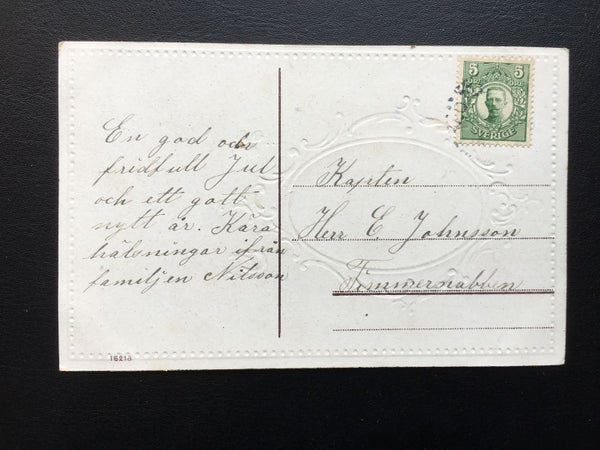 5 5
SVERIGE
En god och
fridfull Jul
och ett gott
nytt år. Kära
hälsningar ifrån
familjen Nilsson
Kapten
Herr E Johnsson
Timmernabben
16213